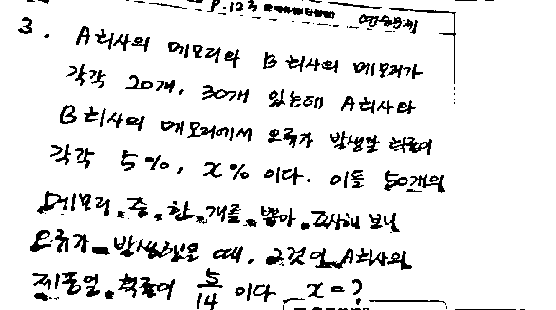 P.123 연습문제
3. A회사의 메모리와 B회사의 메모리가
각각 20개, 30개 있는데 A회사와
B회사의 메모리에서 오류가 발생할 확률이
각각 5%, x% 이다. 이들 50개의
메모리 중 한 개를 뽑아 조사해 보니
오류가 발생했을 때, 그것이 A회사의
제품일 확률이 5/14 이다 x=?